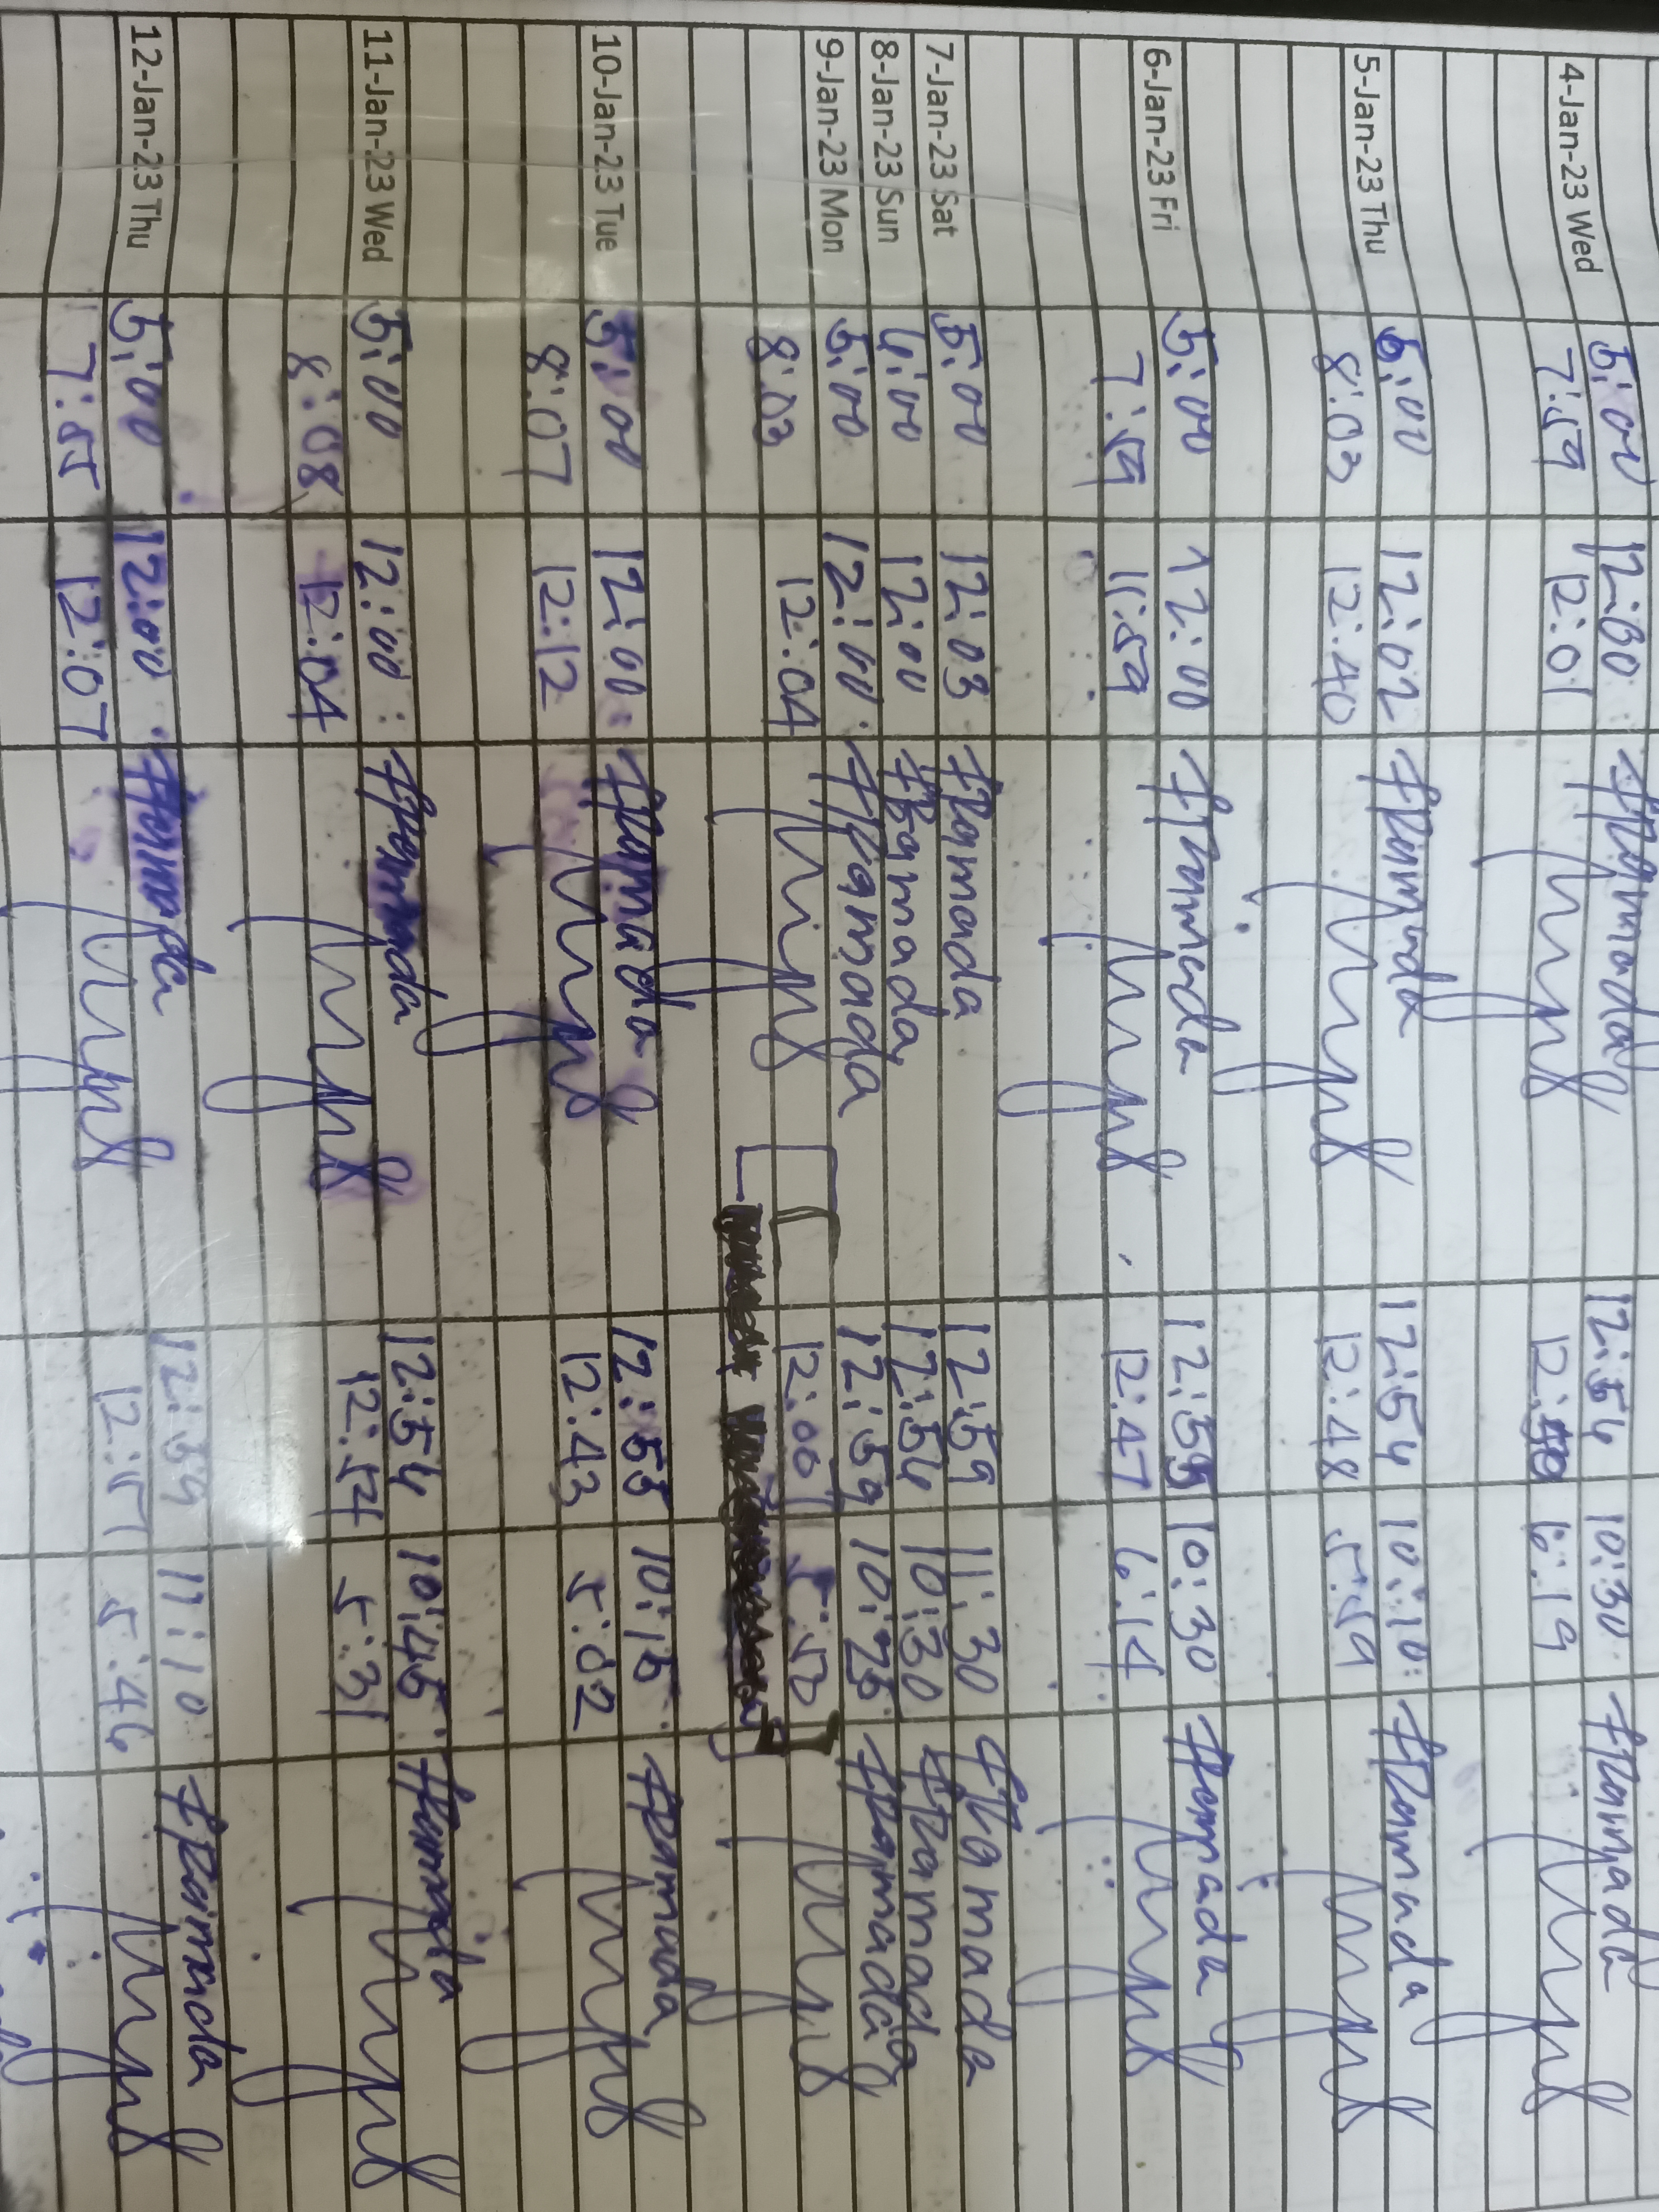 4-Jan-23 Wed 5:00 12:30 #Pramada 12:54 10:30 #Pramada
7:59 12:01 12:50 6:19
5-Jan-23 Thu 5:00 12:02 #Pramada 12:54 10:10 #Pramada
8:03 12:40 12:48 5:59
6-Jan-23 Fri 5:00 12:00 #Pramada 12:55 10:30 #Pramada
7:59 11:59 12:47 6:14
7-Jan-23 Sat 5:00 12:03 #Pramada 12:59 11:30 #Pramada
8-Jan-23 Sun 4:00 12:00 #Pramada 12:54 10:30 #Pramada
9-Jan-23 Mon 5:00 12:00 #Pramada 12:59 10:25 #Pramada
8:03 12:04 12:00 5:50
10-Jan-23 Tue 5:00 12:00 #Pramada 12:55 10:15 #Pramada
8:07 12:12 12:43 5:02
11-Jan-23 Wed 5:00 12:00 #Pramada 12:54 10:45 #Pramada
8:08 12:04 12:57 5:31
12-Jan-23 Thu 5:00 12:00 #Pramada 12:59 11:10 #Pramada
7:55 12:07 12:57 5:46